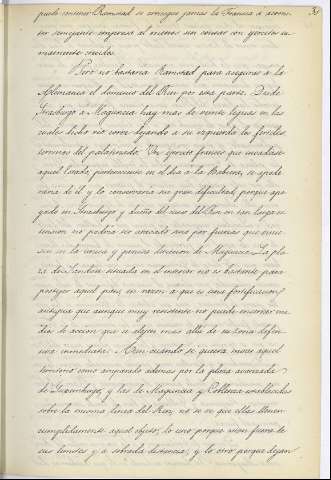 puede contener Ramstad se consigue jamas la Francia a acome-
ter semejante empresa al menos sin contar con ejercitos su-
mamente crecidos.
Pero no bastaria Ramstad para asegurar a la
Alemania el dominio del Rin por esta parte. Desde
Strasburgo a Maguncia hay mas de veinte leguas en las
cuales dicho rio corre dejando a su izquierda los fertiles
terrenos del palatinado. Un ejercito frances que invadiese
aquel Estado, perteneciente en el dia a la Baviera, se apode-
raria de el y lo conservaria sin gran dificultad, porque apo-
yado en Strasburgo y dueño del curso del Rin en tan larga es-
tension no podria ser atacado sino por fuerzas que vinie-
sen en la unica y precisa direccion de Maguncia. La pla-
za de Landau situada en el interior no es bastante para
proteger aquel pais, en razon a que es una fortificacion
antigua que aunque muy resistente no puede encerrar me-
dios de accion que se alejen mas alla de su zona defen-
siva inmediata. Aun cuando se quiera mirar aquel
territorio como amparado ademas por la plaza avanzada
de Luxemburgo, y las de Maguncia y Coblenza establecidas
sobre la misma linea del Rin, no se ve que ellas llenen
cumplidamente aquel objeto, lo uno porque estan fuera de
sus limites y a sobrada distancia; y lo otro porque dejan